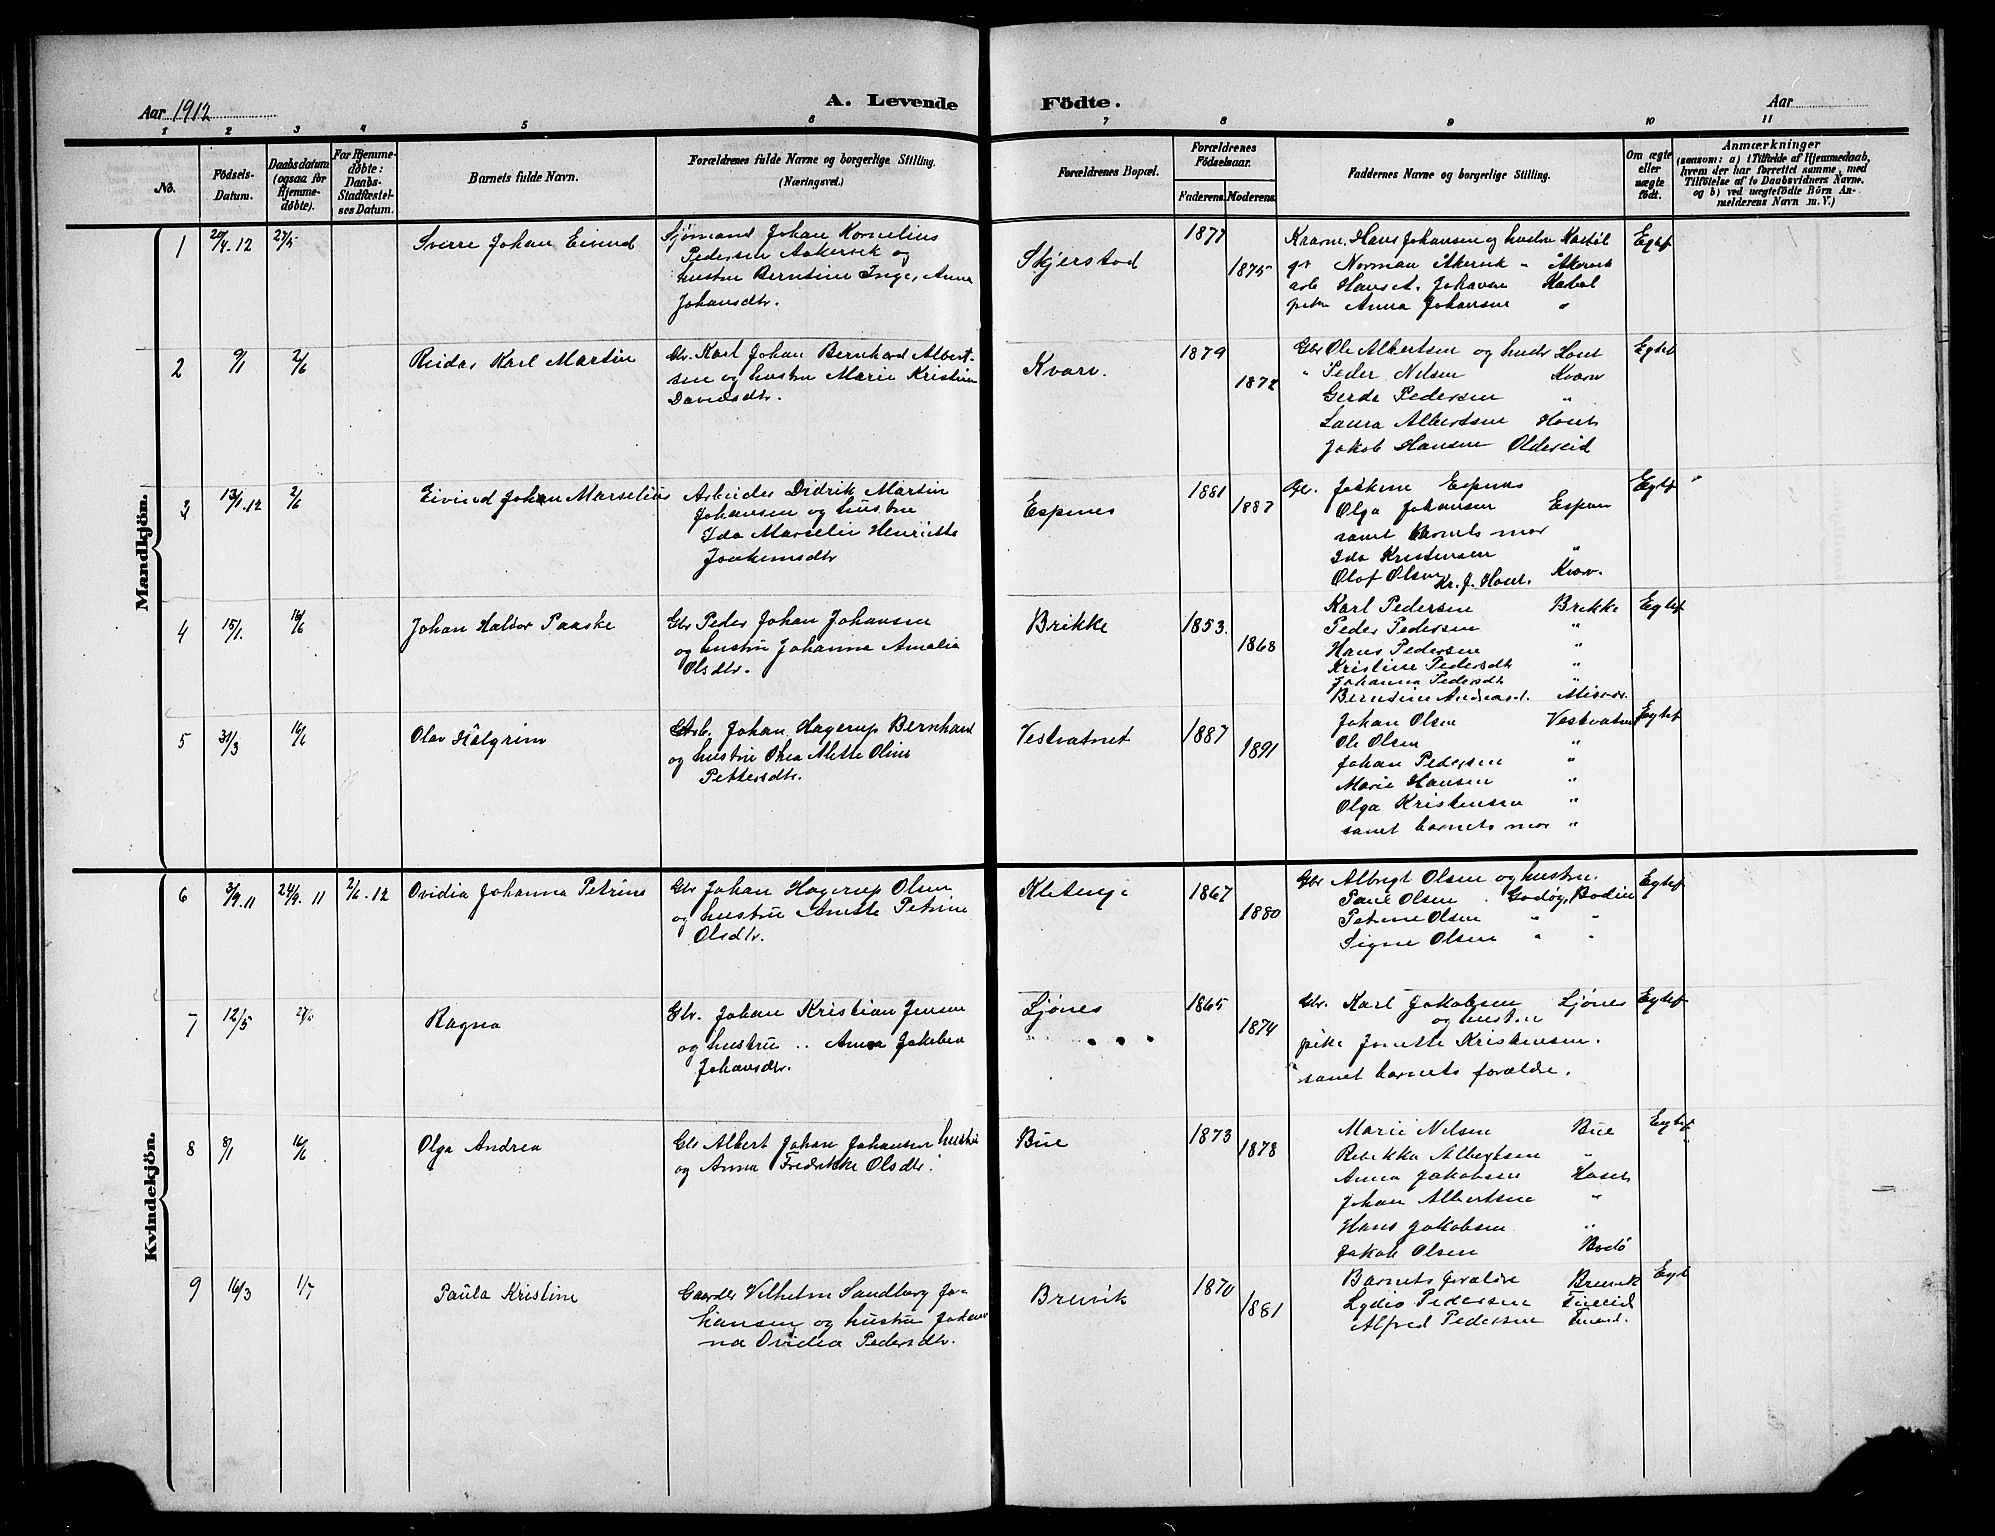 Aar 1912
A. Levende
Födte.
Aar
1 2 3 4 5 6 7 8 9 10 11
No.
Födsels-
Datum.
Daabsdatum
(ogsaa for
Hjemme-
døbte).
For Hjemme-
døbte:
Daabs-
Stadfæstel-
ses Datum.
Barnets fulde Navn.
Forældrenes fulde Navne og borgerlige Stilling.
(Næringsvei.)
Forældrenes Bopæl.
Forældrenes
Födselsaar.
Faderens. Moderens.
Faddernes Navne og borgerlige Stilling.
Om ægte
eller
uægte
födt.
Anmærkninger
(saasom: a) i Tilfælde af Hjemmedaab,
hvem der har forrettet samme, med
Tilföielse af to Daabsvidners Navne.
og b) ved uægtefödte Börn An-
melderens Navn m. V.)
Mandkjön.
1 20/4.12 27/5 Sverre Johan Eivind
Sjömand Johan Kornelius
Pedersen Aakervik og
hustru Berntine Inge, Anna
Johansdtr.
Skjerstad
1877
1875
Hans Johansen og hustru
Norman Åkervik " Åkervik
Johansen
Anna Johansen "
Egtef
2 9/1 2/6 Reidar Karl Martin
Gbr. Karl Johan Bernhard Albert-
sen og hustru Marie Kristine
Davidsdtr.
Kvarv.
1879
1872
Gbr Ole Albertsen og hustr
" Peder Nilsen Kvarv
Gerda Pedersen "
Laura Albertsen
Jakob Hansen Oldereid
Egtef
3 13/1.12 2/6 Eivind Johan Marselius
Arbeider Didrik Martin
Johansen og hustru
Ida Marselie Henriette
Joakimsdtr
Espenes
1881
1887
Espenes
Olga Johansen
samt barnets mor
Ida Kristensen "
Olaf Olsen Kvarv.
Egtef "
4 15/1. 16/6 Johan Haldor Paaske
Gbr Peder Johan Johansen
og hustru Johanna Amalia
Olsdtr.
Brekke
1853.
1868
Karl Pedersen Brekke
Peder Pedersen "
Hans Pedersen "
Kristine Pedersdtr "
Johanna Pedersdtr "
Berndine Andreasd.
Egtef
5 31/3 16/6 Olav Halgrim
Johan Hagerup Bernhard
og hustru Alette Oline
Pettersdtr.
Vestvatnet
1887
1891
Johan Olsen Vestvatnet
Ole Olsen "
Johan Pedersen "
Marie Hansen "
Olga Kristensen "
samt barnets mor "
Egtef
Kvindekjön.
6 3/9.11 24/9.11 2/6.12 Ovidia Johanna Petrine
Gbr Johan Hagerup Olsen
og hustru Anette Petrine
Olsdtr.
1867
1880
Gbr Albrigt Olsen og hustru.
Paul Olsen Godøy, Bodin
Petrine Olsen " "
Signe Olsen " "
Egtef
7 12/5 Ragna
Gbr. Johan Kristian Jensen
og hustru .. Anna Jakobea
Johansdtr.
Ljönes
1865
1874
Gbr. Karl Jakobsen Ljönes
og hustru
pike Jonette Kristensen.
samt barnets forældre.
Egtef
8 8/1 16/6 Olga Andrea
Gbr Albert Johan Johansen hustru
og Anna Fredrikke Olsdtr.
Bue
1873
1878
Marie Nilsen Bue
Rebekka Albertsen "
Anna Jakobsen
Johan Albertsen "
Hans Jakobsen "
Jakob Olsen Bodö
Egtef
9 16/3 1/7 Paula Kristine
Gaardbr Vilhelm Sandberg Jo-
hansen og hustru Johan-
na Ovidea Pedersdtr.
Breivik
1870
1881
Barnets forældre Breivik
Lydia Pedersen
Alfred Pedersen
Egt